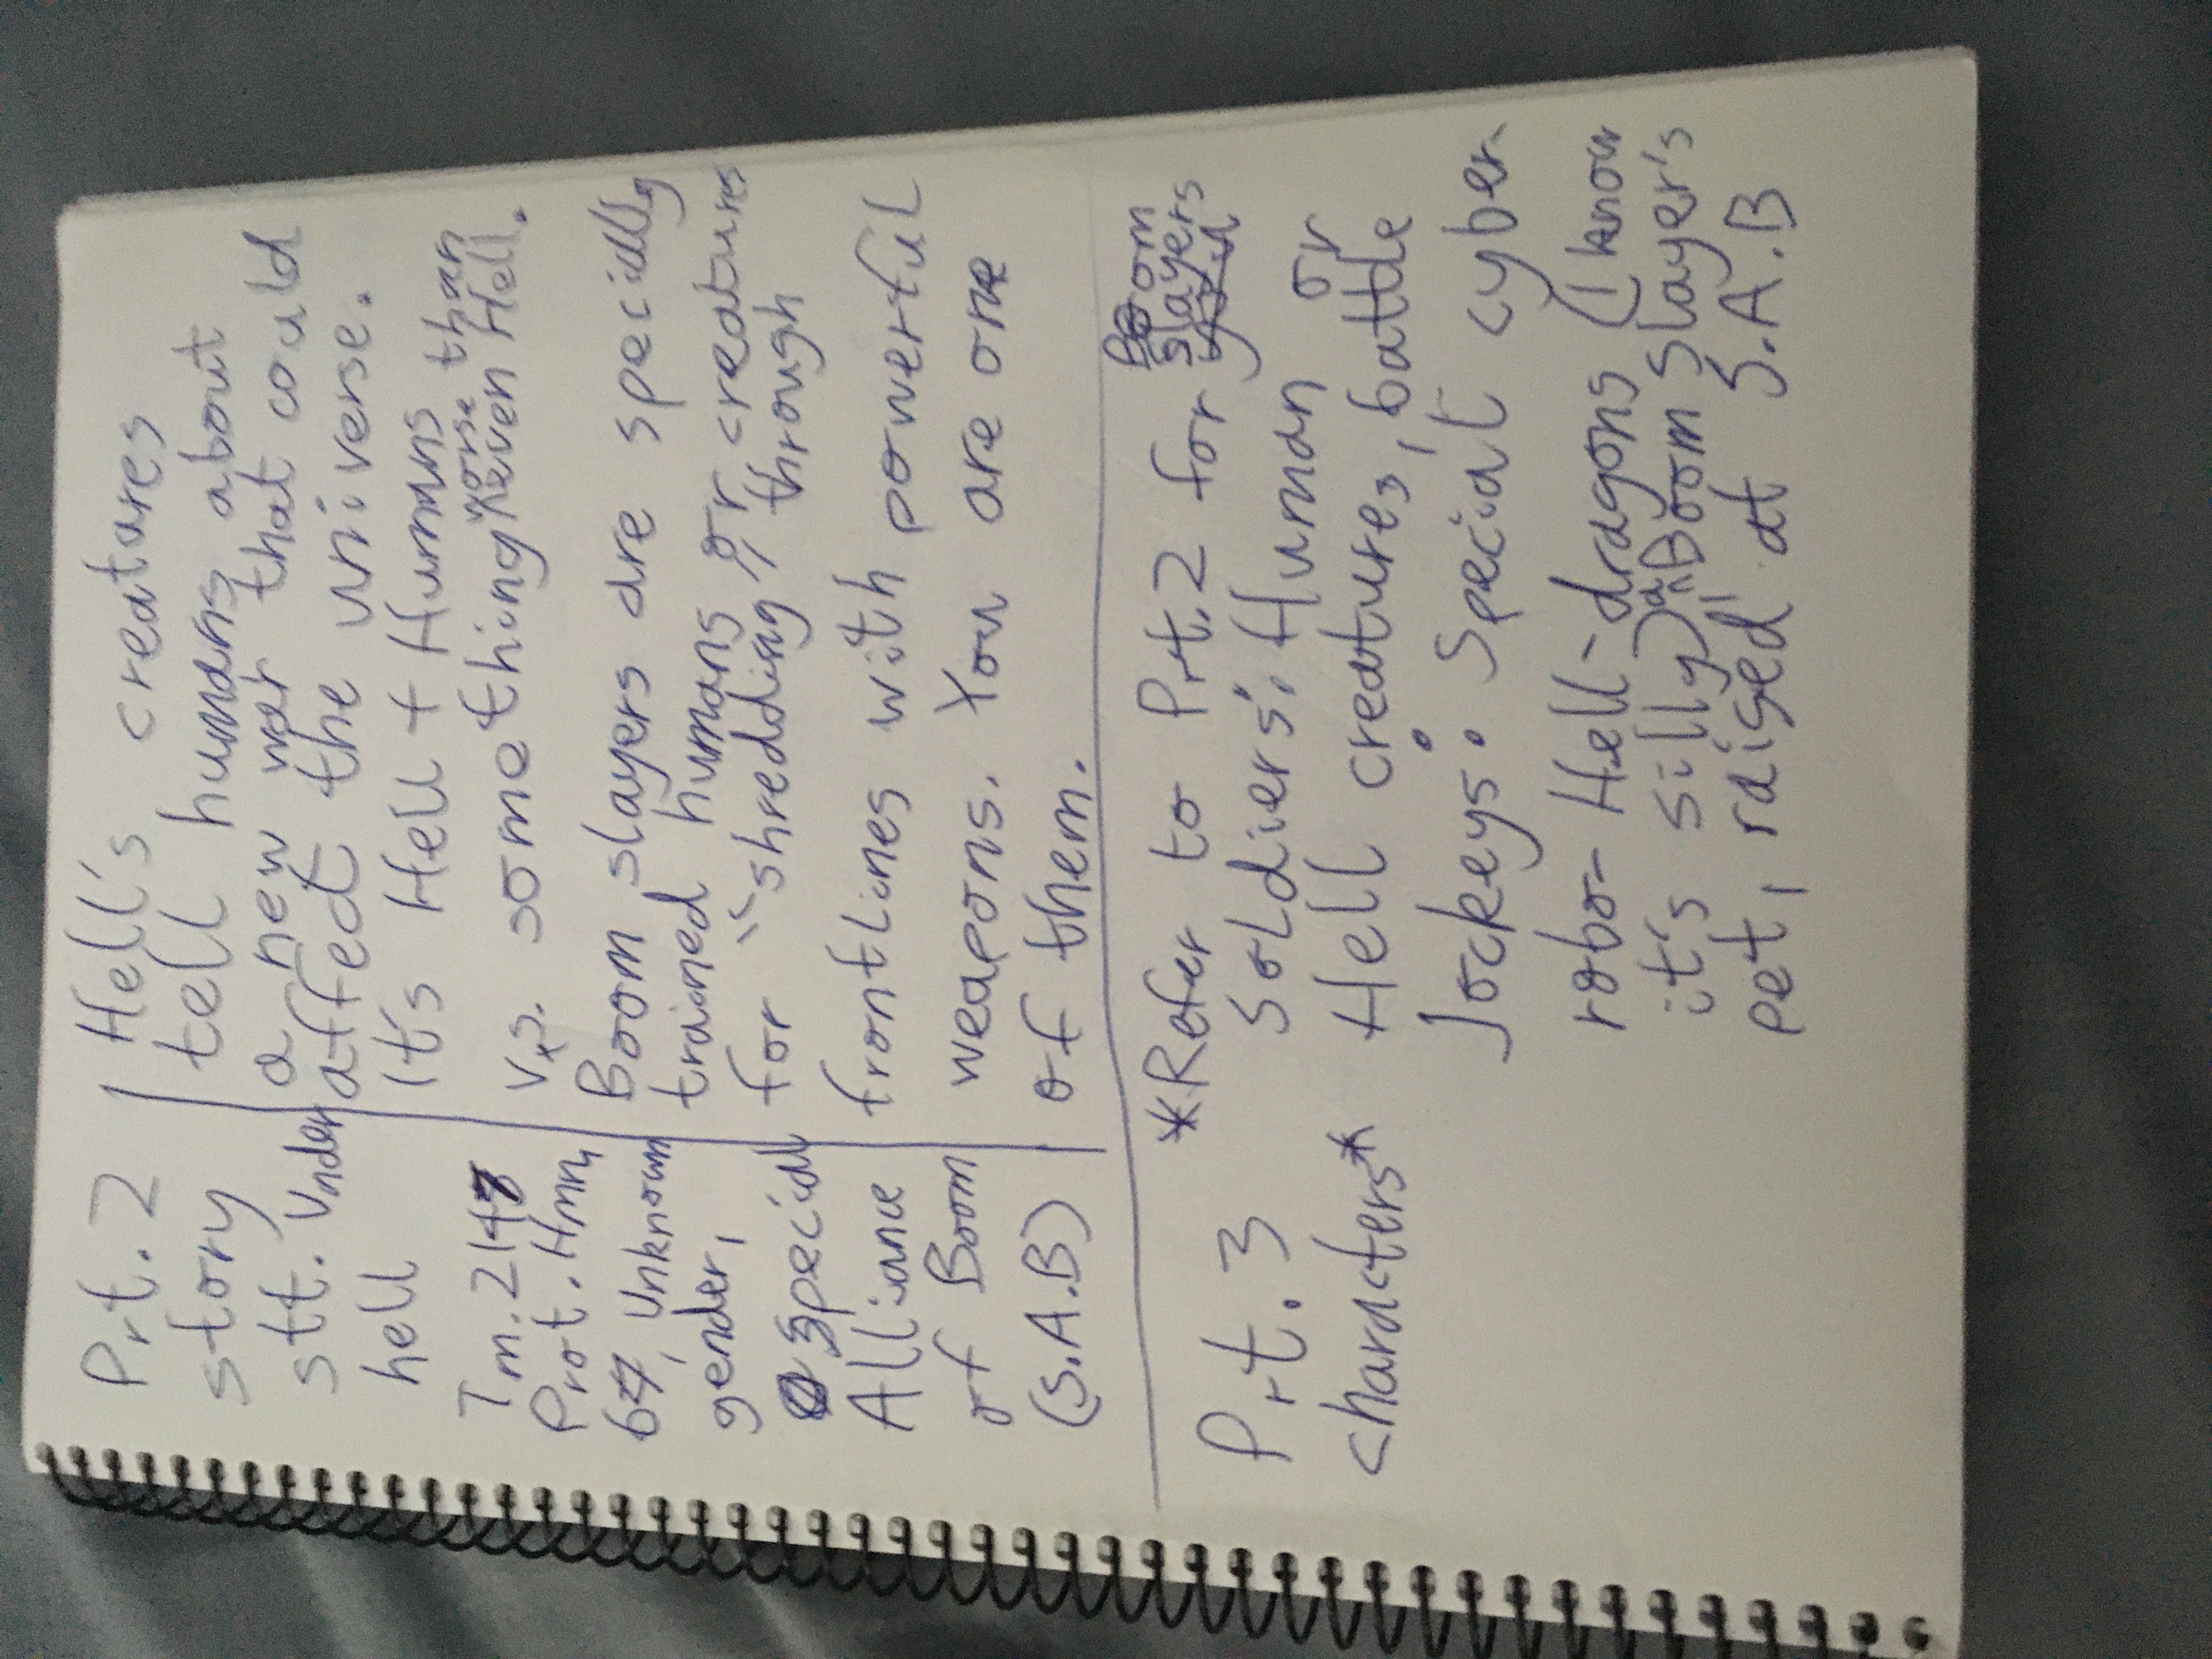 Prt. 2
story
stt. Under
hell
Tm. 2147
Prot. Hmn,
67, Unknown
gender,
Special
Alliance
of Boom
(S.A.B)
Hell's creatures
tell humans about
a new war that could
affect the universe.
It's Hell + Humans
v.s. something worse than even Hell.
Boom slayers are specially
trained humans or creatures
for "shredding" through
frontlines with powerful
weapons. You are one
of them.
*Refer to Prt. 2 for Boom slayers
Prt. 3
characters*
Soldiers: Human or
Hell creatures, battle
Jockeys: Special cyber-
robo-Hell-dragons (I know
it's silly), a Boom Slayer's
pet, raised at S.A.B